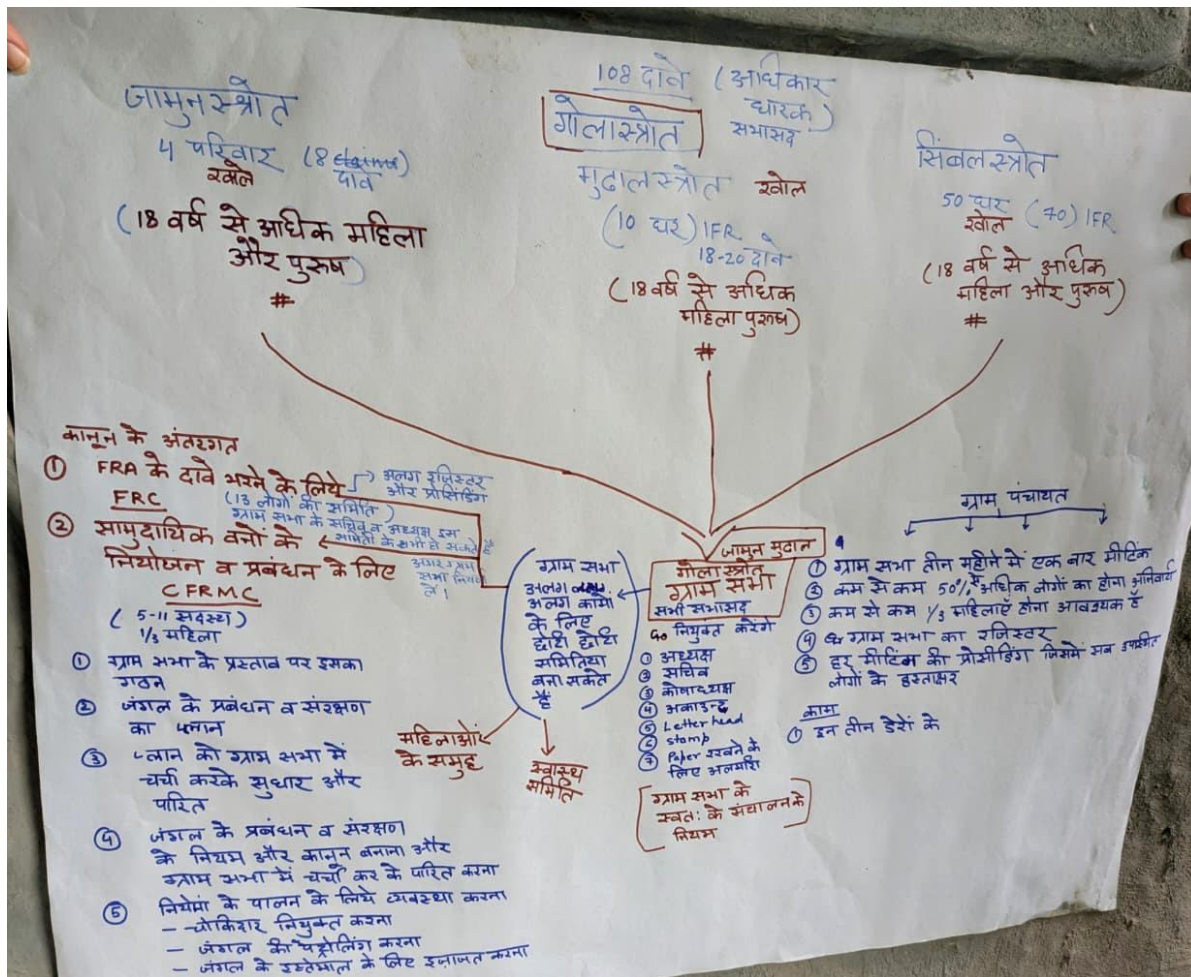 जामुनस्त्रोत
4 परिवार (8 claims)
खोले दावे
(18 वर्ष से अधिक महिला
और पुरुष)
#
108 दावे (अधिकार
धारक)
सभासद
गोलास्त्रोत
मुढालस्त्रोत खोल
(10 घर) IFR
18-20 दावे
(18 वर्ष से अधिक
महिला पुरुष)
#
सिंबलस्त्रोत
50 घर (70) IFR
खोल
(18 वर्ष से अधिक
महिला और पुरुष)
#
कानून के अंतरगत
① FRA के दावे भरने के लिये → अलग रजिस्टर
और प्रोसिडिंग
FRC (13 लोगों की समिति)
ग्राम सभा के सचिव व अध्यक्ष इस
समिती के सभी हो सकते है
अगर ग्राम
सभा निर्णय
लें।
② सामुदायिक वनो के
नियोजन व प्रबंधन के लिए
CFRMC
(5-11 सदस्य)
1/3 महिला
① ग्राम सभा के प्रस्ताव पर इसका
गठन
② जंगल के प्रबंधन व संरक्षण
का प्लान
③ प्लान को ग्राम सभा में
चर्चा करके सुधार और
पारित
④ जंगल के प्रबंधन व संरक्षण
के नियम और कानून बनाना और
ग्राम सभा में चर्चा कर के पारित करना
⑤ नियमों के पालन के लिये व्यवस्था करना
- चोकिदार नियुक्त करना
- जंगल की पट्रोलिंग करना
- जंगल के इस्तेमाल के लिए इजाजत करना
ग्राम सभा
अलग
अलग कामों
के लिए
छोटी छोटी
समितिया
बना सकते
है
महिलाओं
के समुह
स्वास्थ
समिति
जामुन मुदाल
गोलास्त्रोत
ग्राम सभा
सभी सभासद
नियुक्त करेंगे
① अध्यक्ष
② सचिव
③ कोषाध्यक्ष
④ अकाउन्ट
⑤ Letter head
⑥ stamp
⑦ Paper रखने के
लिए अलमारी
ग्राम सभा के
स्वतः के संचालन के
नियम
ग्राम पंचायत
① ग्राम सभा तीन महीने में एक बार मीटिंग
② कम से कम 50% से अधिक लोगों का होना अनिवार्य
③ कम से कम 1/3 महिलाएँ होना आवश्यक है
④ ग्राम सभा का रजिस्टर
⑤ हर मीटिंग की प्रोसीडिंग जिसमें सब उपस्थित
लोगों के हस्ताक्षर
काम
① इन तीन डेरों के